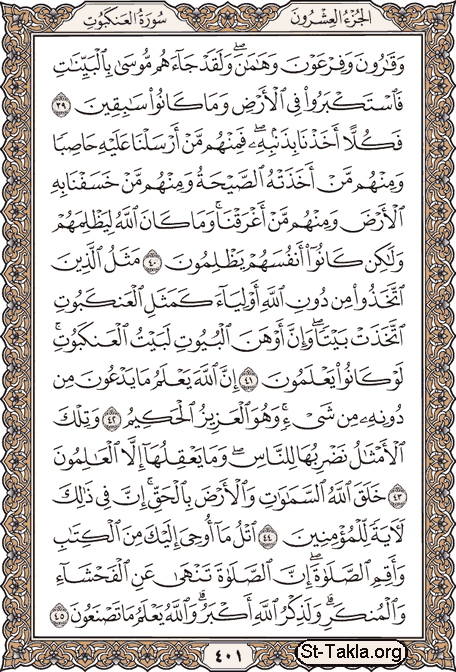 الجزء العشرون سورة العنكبوت
وَقَٰرُونَ وَفِرْعَوْنَ وَهَٰمَٰنَ ۖ وَلَقَدْ جَآءَهُم مُّوسَىٰ بِٱلْبَيِّنَٰتِ
فَٱسْتَكْبَرُوا۟ فِى ٱلْأَرْضِ وَمَا كَانُوا۟ سَٰبِقِينَ ٣٩
فَكُلًّا أَخَذْنَا بِذَنۢبِهِۦ ۖ فَمِنْهُم مَّنْ أَرْسَلْنَا عَلَيْهِ حَاصِبًا
وَمِنْهُم مَّنْ أَخَذَتْهُ ٱلصَّيْحَةُ وَمِنْهُم مَّنْ خَسَفْنَا بِهِ
ٱلْأَرْضَ وَمِنْهُم مَّنْ أَغْرَقْنَا ۚ وَمَا كَانَ ٱللَّهُ لِيَظْلِمَهُمْ
وَلَٰكِن كَانُوٓا۟ أَنفُسَهُمْ يَظْلِمُونَ ٤٠ مَثَلُ ٱلَّذِينَ
ٱتَّخَذُوا۟ مِن دُونِ ٱللَّهِ أَوْلِيَآءَ كَمَثَلِ ٱلْعَنكَبُوتِ
ٱتَّخَذَتْ بَيْتًا ۖ وَإِنَّ أَوْهَنَ ٱلْبُيُوتِ لَبَيْتُ ٱلْعَنكَبُوتِ ۖ
لَوْ كَانُوا۟ يَعْلَمُونَ ٤١ إِنَّ ٱللَّهَ يَعْلَمُ مَا يَدْعُونَ مِن
دُونِهِۦ مِن شَىْءٍ ۚ وَهُوَ ٱلْعَزِيزُ ٱلْحَكِيمُ ٤٢ وَتِلْكَ
ٱلْأَمْثَٰلُ نَضْرِبُهَا لِلنَّاسِ ۖ وَمَا يَعْقِلُهَآ إِلَّا ٱلْعَٰلِمُونَ
٤٣ خَلَقَ ٱللَّهُ ٱلسَّمَٰوَٰتِ وَٱلْأَرْضَ بِٱلْحَقِّ ۚ إِنَّ فِى ذَٰلِكَ
لَءَايَةً لِّلْمُؤْمِنِينَ ٤٤ ٱتْلُ مَآ أُوحِىَ إِلَيْكَ مِنَ ٱلْكِتَٰبِ
وَأَقِمِ ٱلصَّلَوٰةَ ۖ إِنَّ ٱلصَّلَوٰةَ تَنْهَىٰ عَنِ ٱلْفَحْشَآءِ
وَٱلْمُنكَرِ ۗ وَلَذِكْرُ ٱللَّهِ أَكْبَرُ ۗ وَٱللَّهُ يَعْلَمُ مَا تَصْنَعُونَ ٤٥
٤٠١
St-Takla.org